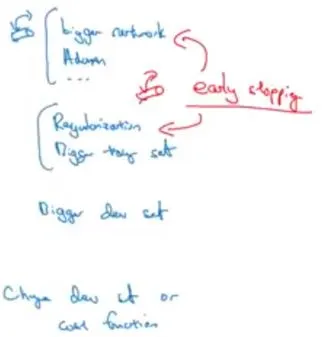 bigger network
Adam
...
early stopping
Regularization
Bigger train set
Bigger dev set
Change dev set or
cost function